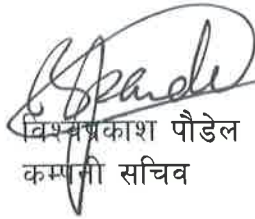 विश्वप्रकाश पौडेल
कम्पनी सचिव